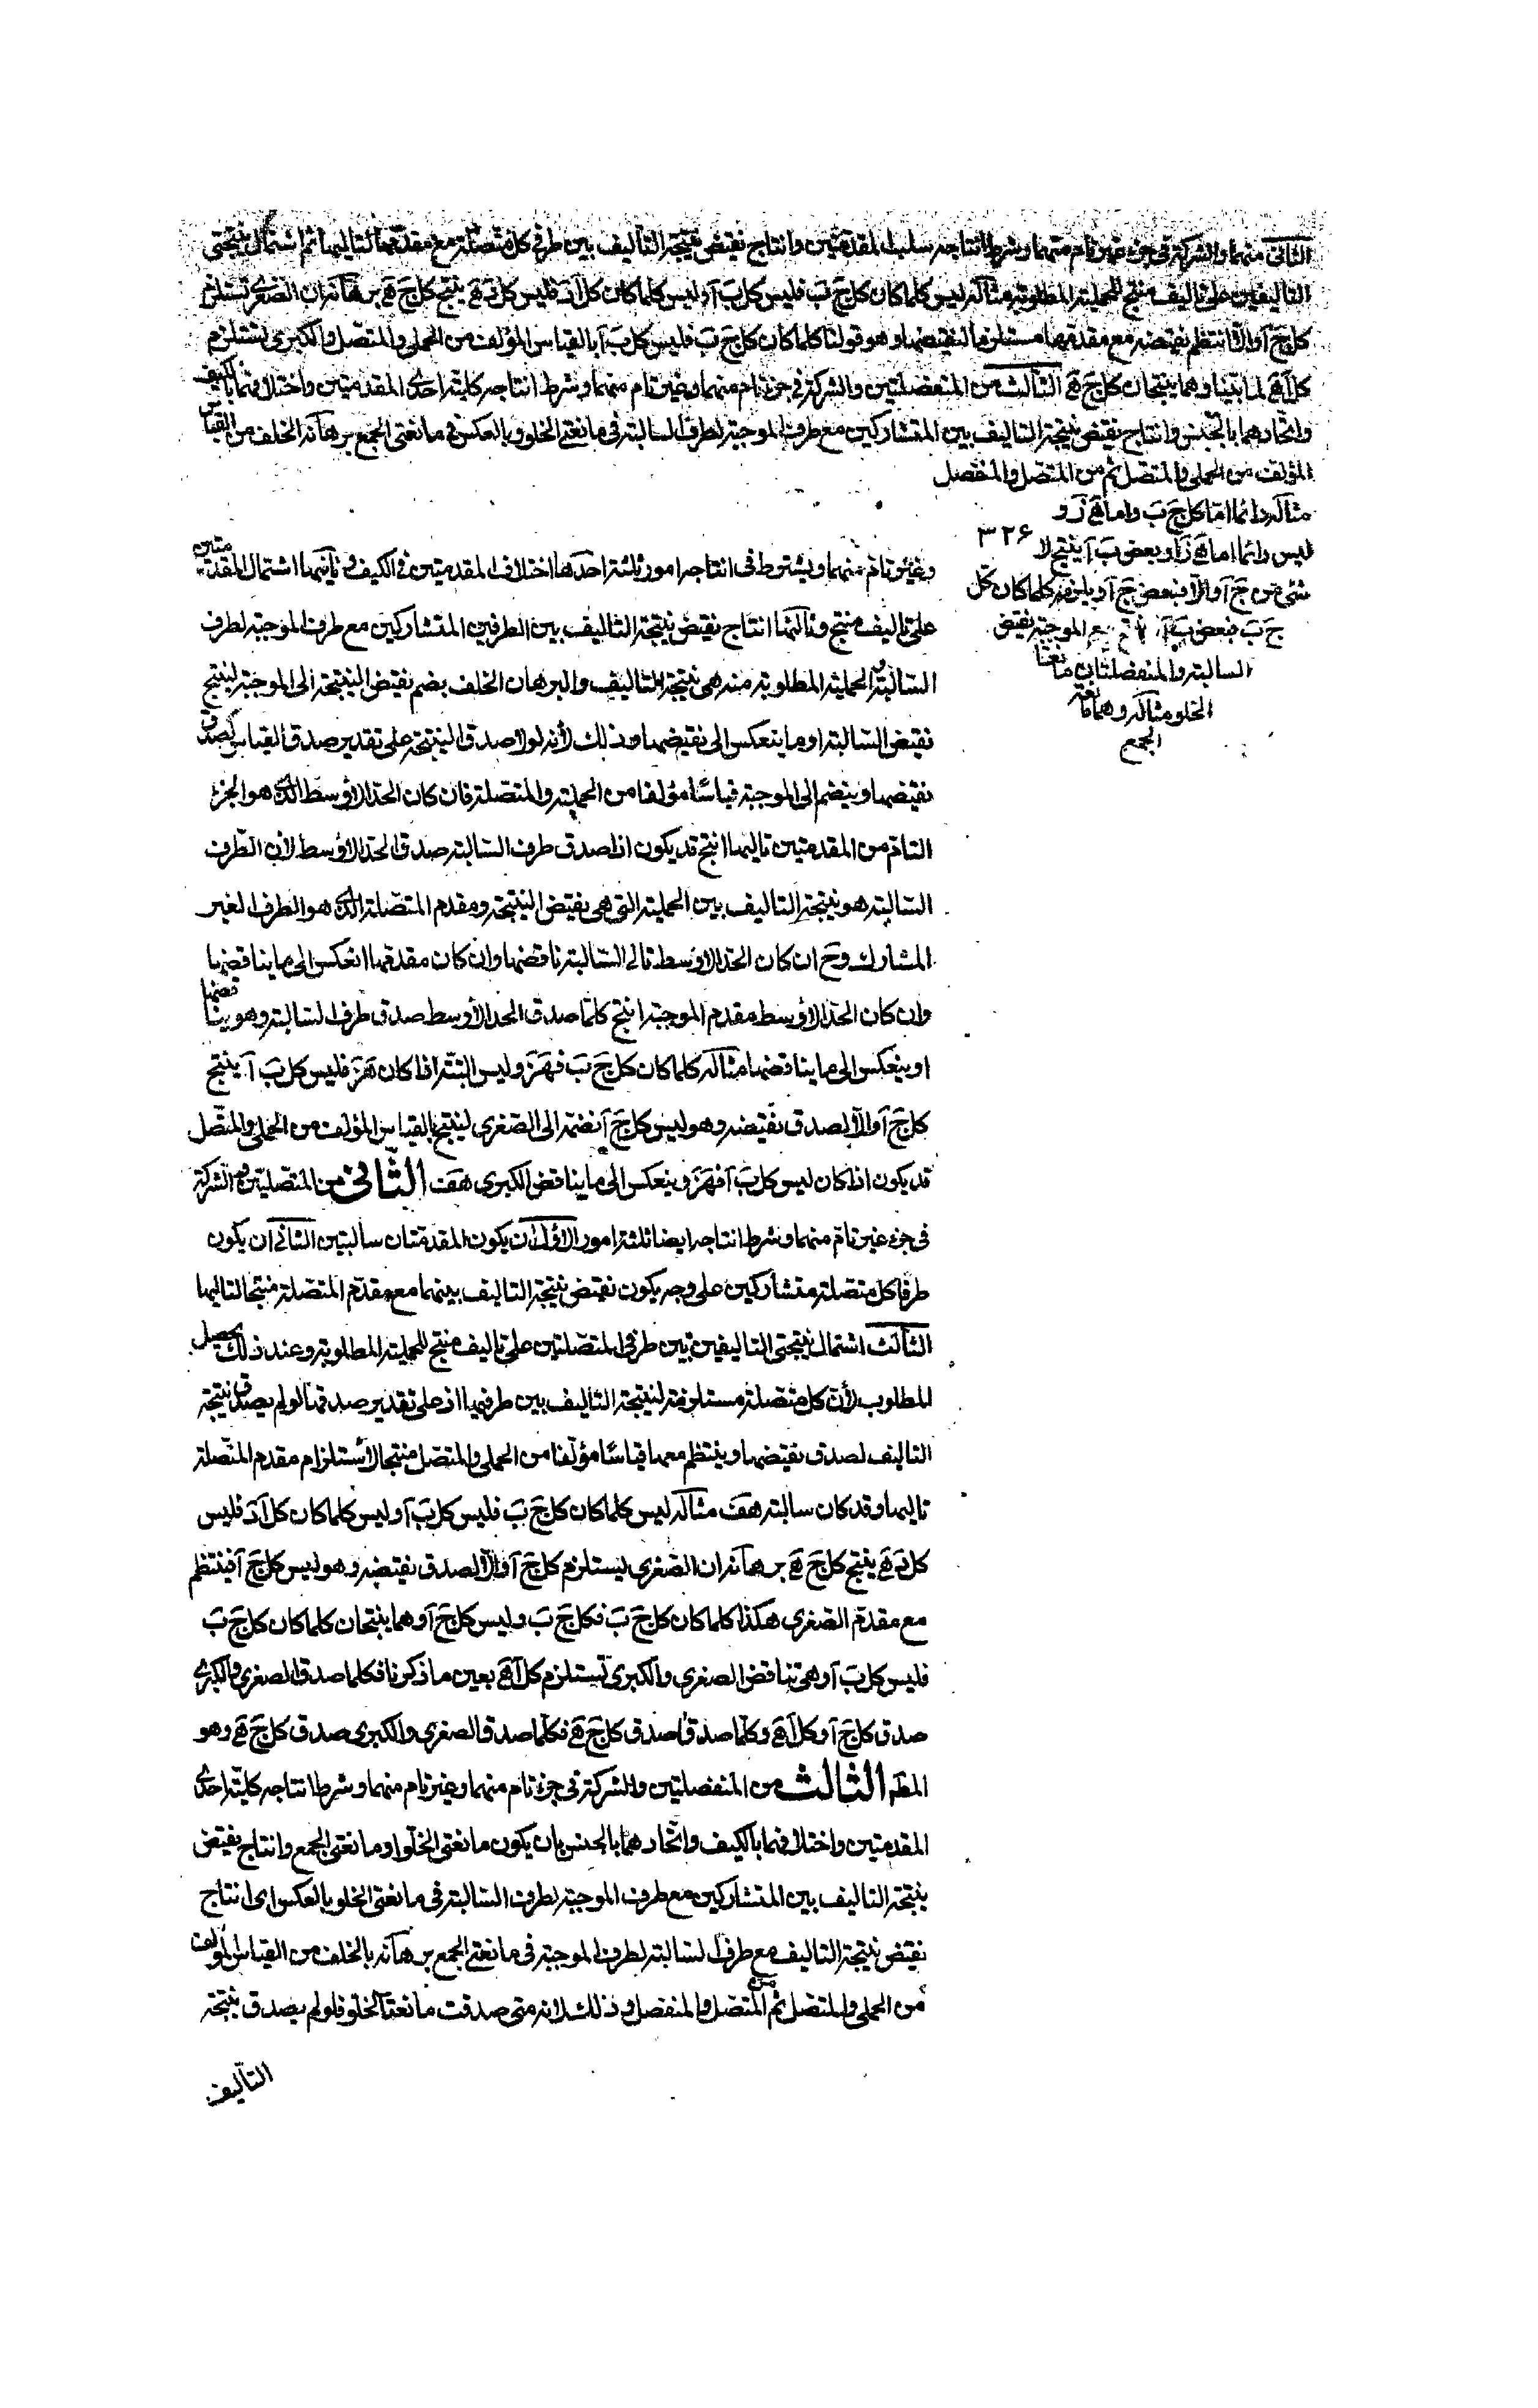 الثانى منهما والشركة فى جزء غير تام منهما وشرط انتاجه سلب المقدمتين وانتاج نقيض نتيجة التاليف بين طرفى كل متصلة مع مقدمها لتاليها ثم اشتمال نتيجتى
التاليفين على تاليف منتج للحملية المطلوبة مثاله ليس كلما كان كل ج ب فليس كل ب آ وليس كلما كان كل آ د فليس كل د ه ينتج كل ج ه برهانه ان الصغرى تستلزم
كل ج آ والا انتظم نقيضه مع مقدمها مستلزما لنقيضها وهو قولنا كلما كان كل ج ب فليس كل ب آ بالقياس المؤلف من الحملى والمتصل والكبرى تستلزم
كل آ ه لما بينا وهما ينتجان كل ج ه الثالث من المنفصلتين والشركة فى جزء تام منهما وغير تام منهما وشرط انتاجه كلية احدى المقدمتين واختلافهما بالكيف
واتحادهما بالجنس وانتاج نقيض نتيجة التاليف بين المتشاركين مع طرف الموجبة لطرف السالبة فى مانعتى الخلو وبالعكس فى مانعتى الجمع برهانه الخلف من القياس
المؤلف من الحملى والمتصل ثم من المتصل والمنفصل
مثاله دائما اما كل ج ب واما ه ز و
ليس دائما اما ه ز او بعض ب آ ينتج لا
شئ من ج آ والا فبعض ج آ ويلزمه كلما كان كل
ج ب فبعض ب آ مع الموجبة نقيض
السالبة والمنفصلتان مانعتا
الخلو مثاله وهما مانعة
الجمع
٣٢۶
وغير تام منهما ويشترط فى انتاجه امور ثلثة احدها اختلاف المقدمتين فى الكيف وثانيها اشتمال المقدمتين
على تاليف منتج وثالثها انتاج نقيض نتيجة التاليف بين الطرفين المتشاركين مع طرف الموجبة لطرف
السالبة والحملية المطلوبة منه هى نتيجة التاليف والبرهان الخلف بضم نقيض النتيجة الى الموجبة لينتج
نقيض السالبة او ما ينعكس الى نقيضها وذلك لأنه لولا صدق النتيجة على تقدير صدق القياس لصدق
نقيضها وينضم الى الموجبة قياسًا مؤلفا من الحملية والمتصلة فان كان الحد الاوسط الذى هو الجزء
التام من المقدمتين تاليها انتج قد يكون اذا صدق طرف السالبة صدق الحد الاوسط لأن الطرف
السالبة هو نتيجة التاليف بين الحملية التى هى نقيض النتيجة ومقدم المتصلة الذى هو الطرف الغير
المشارك وح ان كان الحد الاوسط تالى السالبة ناقضها وان كان مقدمها انعكس الى ما يناقضها
وان كان الحد الاوسط مقدم الموجبة انتج كلما صدق الحد الأوسط صدق طرف السالبة وهو يناقضها
او ينعكس الى ما يناقضها مثاله كلما كان كل ج ب فهَ زَ وليس البتة اذا كان هَ زَ فليس كل ب آ ينتج
كل ج آ والا لصدق نقيضه وهو ليس كل ج آ نضمه الى الصغرى لينتج بالقياس المؤلف من الحملى والمتصل
قد يكون اذا كان ليس كل ب آ فهَ زَ وينعكس الى ما يناقض الكبرى هف الثانى من المتصلتين والشركة
فى جزء غير تام منهما وشرط انتاجه ايضا ثلثة امور الاول ان يكون المقدمتان سالبتين الثانى ان يكون
طرفا كل متصلة متشاركين على وجه يكون نقيض نتيجة التاليف بينهما مع مقدم المتصلة منتجا لتاليها
الثالث اشتمال نتيجتى التاليفين بين طرفى المتصلتين على تاليف منتج للحملية المطلوبة وعند ذلك يحصل
المطلوب لأن كل متصلة مستلزمة لنتيجة التاليف بين طرفيها اذ على تقدير صدقها لو لم يصدق نتيجة
التاليف لصدق نقيضها وينتظم معها قياسًا مؤلفا من الحملى والمتصل منتجا لأستلزام مقدم المتصلة
تاليها وقد كان سالبة هف مثاله ليس كلما كان كل ج ب فليس كل ب آ وليس كلما كان كل آ د فليس
كل د ه ينتج كل ج ه برهانه ان الصغرى يستلزم كل ج آ والا لصدق نقيضه وهو ليس كل ج آ فينتظم
مع مقدم الصغرى هكذا كلما كان كل ج ب فكل ج ب وليس كل ج آ وهما ينتجان كلما كان كل ج ب
فليس كل ب آ وهى تناقض الصغرى والكبرى تستلزم كل آ ه بعين ما ذكرنا فكلما صدق الصغرى والكبرى
صدق كل ج آ وكل آ ه وكلما صدقا صدق كل ج ه فكلما صدق الصغرى والكبرى صدق كل ج ه وهو
المط الثالث من المنفصلتين والشركة فى جزء تام منهما وغير تام منهما وشرط انتاجه كلية احدى
المقدمتين واختلافهما بالكيف واتحادهما بالجنس بان يكون مانعتى الخلو او مانعتى الجمع وانتاج نقيض
نتيجة التاليف بين المتشاركين مع طرف الموجبة لطرف السالبة فى مانعتى الخلو وبالعكس اى انتاج
نقيض نتيجة التاليف مع طرف السالبة لطرف الموجبة فى مانعتى الجمع برهانه بالخلف من القياس المؤلف
من الحملى والمتصل ثم من المتصل والمنفصل وذلك لانه متى صدقت مانعتا الخلو فلو لم يصدق نتيجة
التاليف